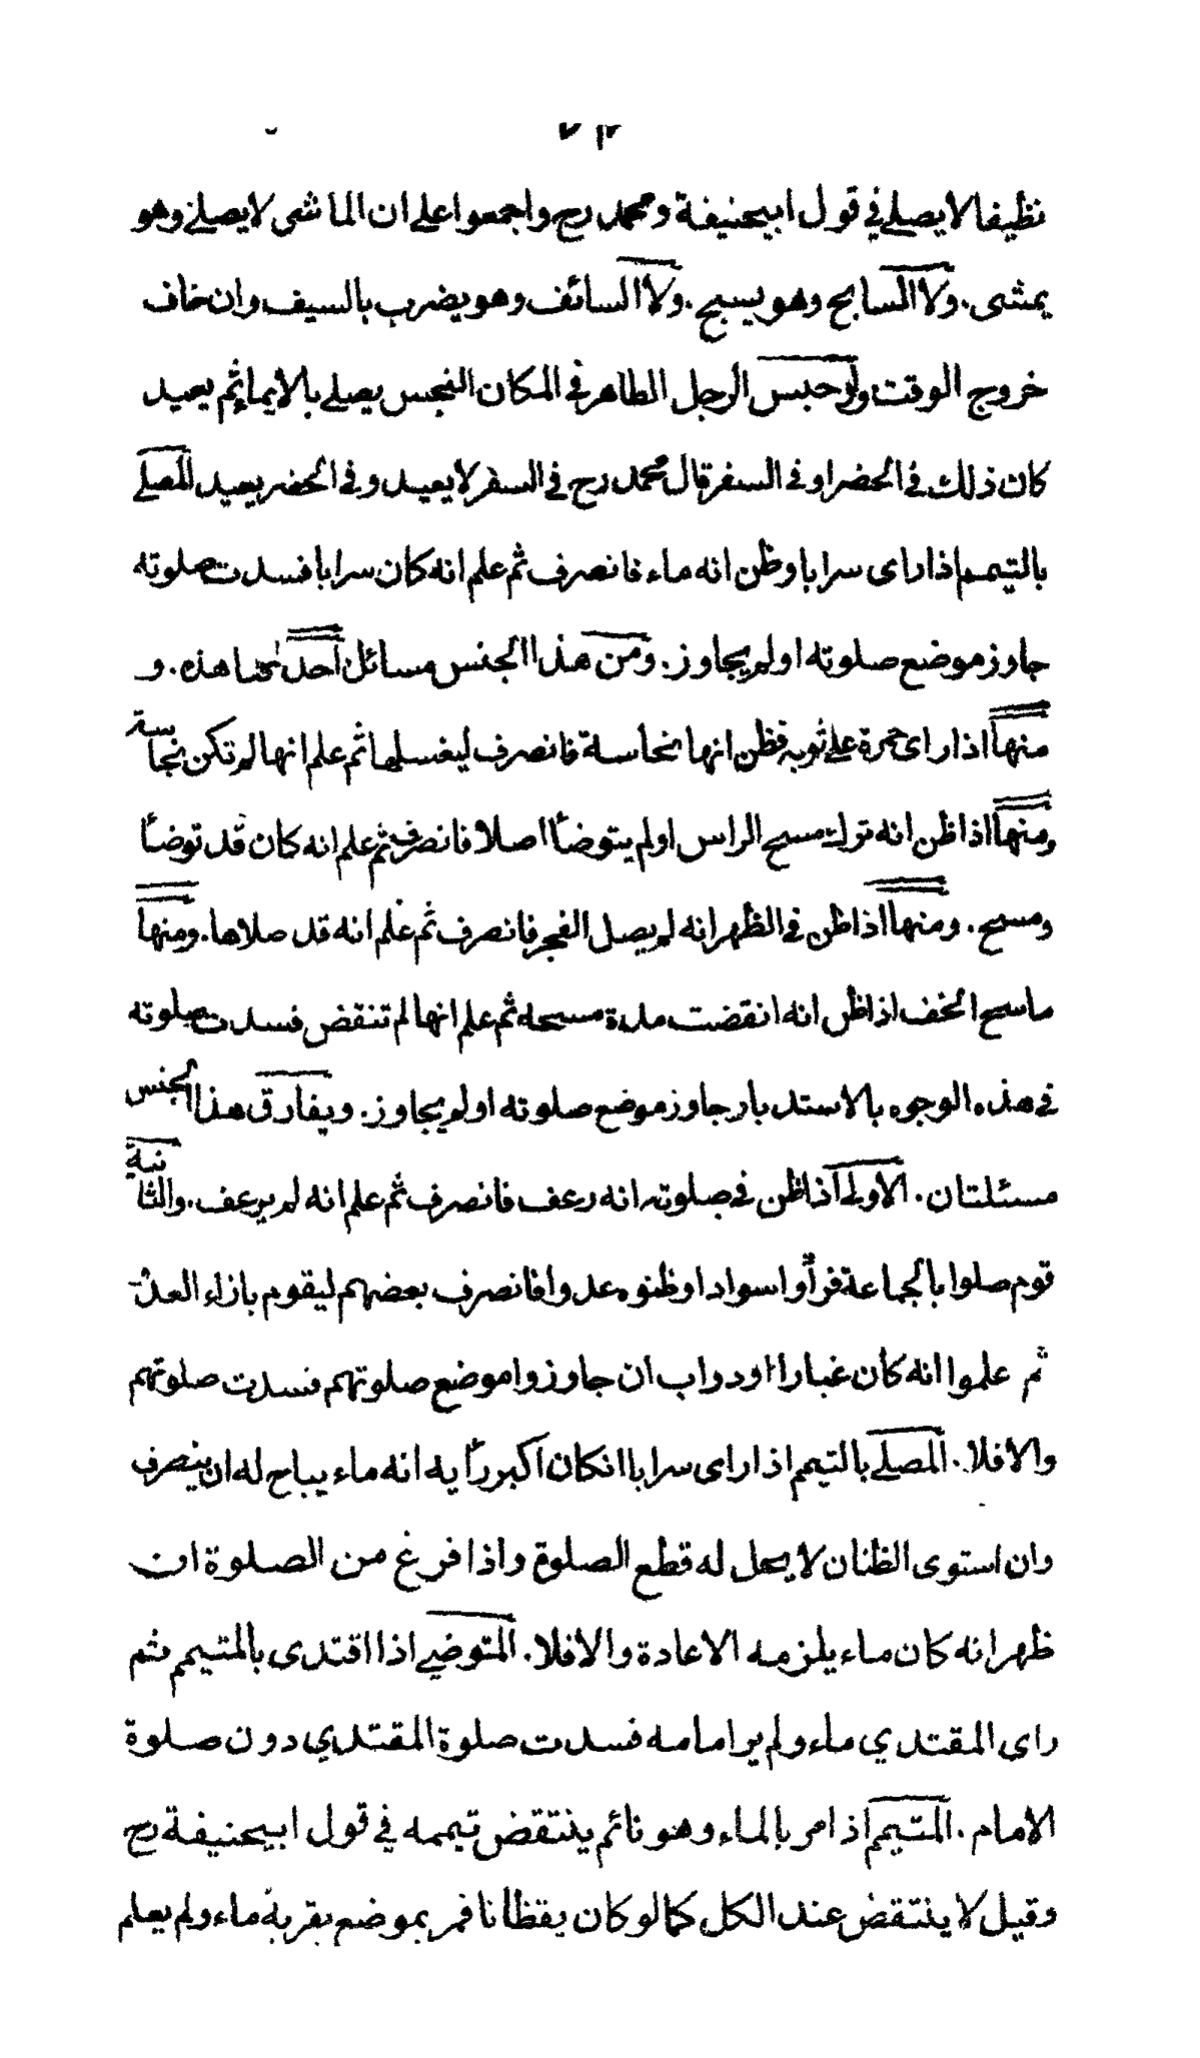 ٧٢
نظيفا لا يصلي في قول ابيحنيفة ومحمد رح واجمعوا على ان الماشى لا يصلي وهو
يمشى . ولا السابح وهو يسبح . ولا السائف وهو يضرب بالسيف وان خاف
خروج الوقت ولو حبس الرجل الطاهر في المكان النجس يصلي بالايماء ثم يعيد
كان ذلك في الحضر او في السفر قال محمد رح في السفر لا يعيد وفي الحضر يعيد المصلي
بالتيمم اذا راى سرابا وظن انه ماء فانصرف ثم علم انه كان سرابا فسدت صلوته
جاوز موضع صلوته اولم يجاوز . ومن هذا الجنس مسائل احدنها هذه . و
منها اذا راى حمرة على ثوبه فظن انها نجاسة فانصرف ليغسلها ثم علم انها لم تكن نجاسة
ومنها اذا ظن انه ترك مسح الراس اولم يتوضأ اصلا فانصرف ثم علم انه كان قد توضأ
ومسح . ومنها اذا ظن في الظهر انه لم يصل الفجر فانصرف ثم علم انه قد صلاها . ومنها
ماسح الخف اذا ظن انه انقضت مدة مسحه ثم علم انها لم تنقض فسدت صلوته
في هذه الوجوه بالاستدبار جاوز موضع صلوته اولم يجاوز . ويفارق هذا الجنس
مسئلتان . الاولى اذا ظن في صلوته انه رعف فانصرف ثم علم انه لم يرعف . والثانية
قوم صلوا بالجماعة فرأوا سوادا وظنوه عدوا فانصرف بعضهم ليقوم بازاء العدو
ثم علموا انه كان غبارا او دواب ان جاوزوا موضع صلوتهم فسدت صلوتهم
والا فلا . المصلي بالتيمم اذا راى سرابا انكان اكبر رأيه انه ماء يباح له ان ينصرف
وان استوى الظنان لا يحل له قطع الصلوة واذا فرغ من الصلوة ان
ظهر انه كان ماء يلزمه الاعادة والا فلا . المتوضي اذا اقتدى بالمتيمم ثم
راى المقتدي ماء ولم ير امامه فسدت صلوة المقتدي دون صلوة
الامام . المتيمم اذ امر بالماء وهو نائم ينتقض تيممه في قول ابيحنيفة رح
وقيل لا ينتقض عند الكل كما لو كان يقظانا فمر بموضع بقربه ماء ولم يعلم